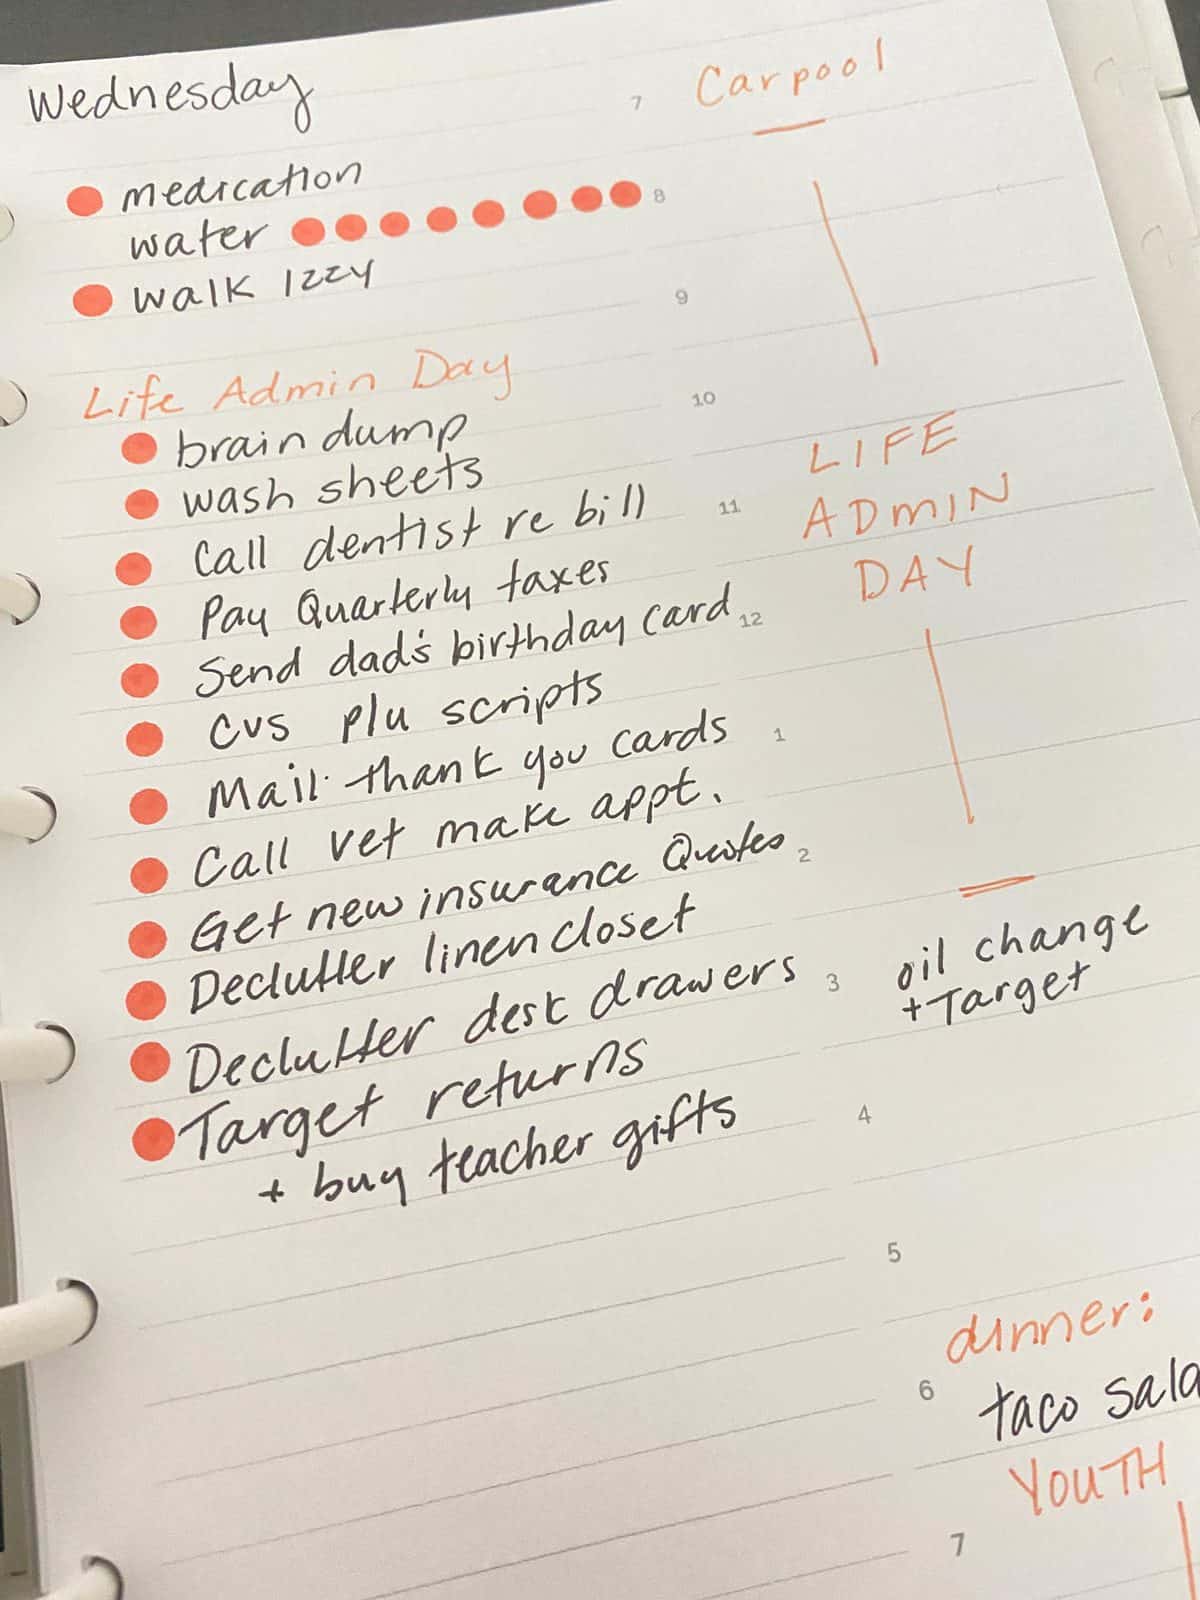 Wednesday
medication
water
walk Izzy
Life Admin Day
brain dump
wash sheets
Call dentist re bill
Pay Quarterly taxes
Send dad's birthday card
CVS plu scripts
Mail thank you cards
Call vet make appt.
Get new insurance Quotes
Declutter linen closet
Declutter desk drawers
Target returns
+ buy teacher gifts
7 Carpool
8
9
10
LIFE
11 ADMIN
DAY
12
1
2
3 oil change
+ Target
4
5
dinner:
6 taco sala
YOUTH
7